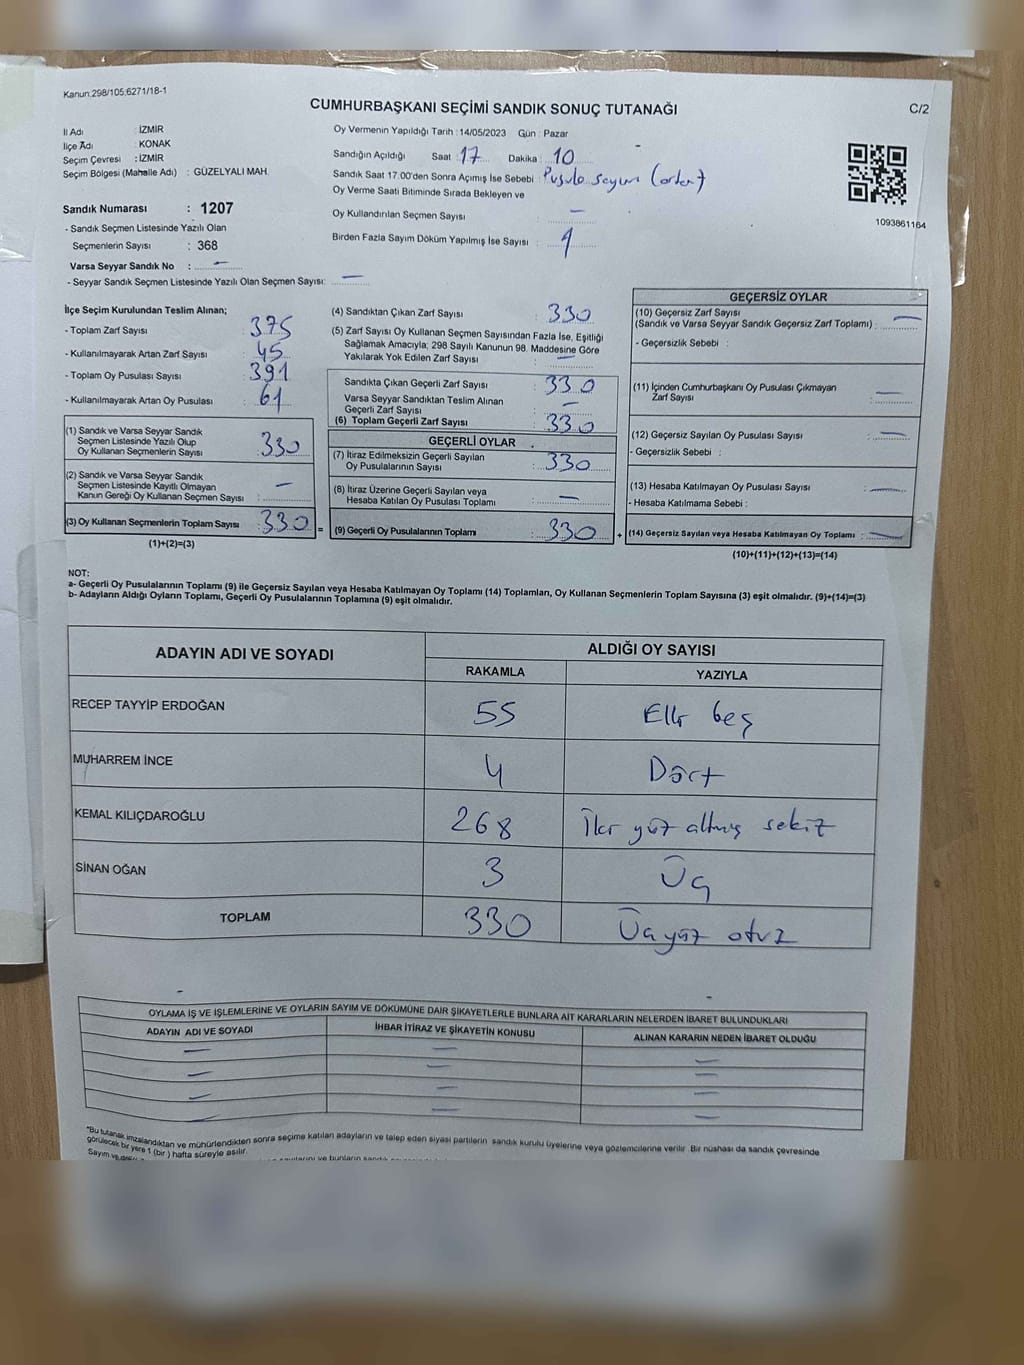 Kanun:298/105;6271/18-1
CUMHURBAŞKANI SEÇİMİ SANDIK SONUÇ TUTANAĞI
C/2
İl Adı : İZMİR
İlçe Adı : KONAK
Seçim Çevresi : İZMİR
Seçim Bölgesi (Mahalle Adı) : GÜZELYALI MAH.
Oy Vermenin Yapıldığı Tarih : 14/05/2023 Gün : Pazar
Sandığın Açıldığı Saat : 17 Dakika : 10
Sandık Saat 17:00'den Sonra Açımış İse Sebebi : Pusula sayımı (artan)
Oy Verme Saati Bitiminde Sırada Bekleyen ve
Oy Kullandırılan Seçmen Sayısı : —
Birden Fazla Sayım Döküm Yapılmış İse Sayısı : 1
1093861164
Sandık Numarası : 1207
- Sandık Seçmen Listesinde Yazılı Olan
Seçmenlerin Sayısı : 368
Varsa Seyyar Sandık No : —
- Seyyar Sandık Seçmen Listesinde Yazılı Olan Seçmen Sayısı: —
İlçe Seçim Kurulundan Teslim Alınan;
- Toplam Zarf Sayısı : 375
- Kullanılmayarak Artan Zarf Sayısı : 45
- Toplam Oy Pusulası Sayısı : 391
- Kullanılmayarak Artan Oy Pusulası : 61
(1) Sandık ve Varsa Seyyar Sandık
Seçmen Listesinde Yazılı Olup
Oy Kullanan Seçmenlerin Sayısı : 330
(2) Sandık ve Varsa Seyyar Sandık
Seçmen Listesinde Kayıtlı Olmayan
Kanun Gereği Oy Kullanan Seçmen Sayısı : —
(3) Oy Kullanan Seçmenlerin Toplam Sayısı : 330 =
(1)+(2)=(3)
(4) Sandıktan Çıkan Zarf Sayısı : 330
(5) Zarf Sayısı Oy Kullanan Seçmen Sayısından Fazla İse, Eşitliği
Sağlamak Amacıyla; 298 Sayılı Kanunun 98. Maddesine Göre
Yakılarak Yok Edilen Zarf Sayısı : —
Sandıkta Çıkan Geçerli Zarf Sayısı : 330
Varsa Seyyar Sandıktan Teslim Alınan
Geçerli Zarf Sayısı : —
(6) Toplam Geçerli Zarf Sayısı : 330
GEÇERLİ OYLAR
(7) İtiraz Edilmeksizin Geçerli Sayılan
Oy Pusulalarının Sayısı : 330
(8) İtiraz Üzerine Geçerli Sayılan veya
Hesaba Katılan Oy Pusulası Toplamı : —
(9) Geçerli Oy Pusulalarının Toplamı : 330 +
GEÇERSİZ OYLAR
(10) Geçersiz Zarf Sayısı
(Sandık ve Varsa Seyyar Sandık Geçersiz Zarf Toplamı) : —
- Geçersizlik Sebebi :
(11) İçinden Cumhurbaşkanı Oy Pusulası Çıkmayan
Zarf Sayısı : —
(12) Geçersiz Sayılan Oy Pusulası Sayısı : —
- Geçersizlik Sebebi :
(13) Hesaba Katılmayan Oy Pusulası Sayısı : —
- Hesaba Katılmama Sebebi :
(14) Geçersiz Sayılan veya Hesaba Katılmayan Oy Toplamı : —
(10)+(11)+(12)+(13)=(14)
NOT:
a- Geçerli Oy Pusulalarının Toplamı (9) ile Geçersiz Sayılan veya Hesaba Katılmayan Oy Toplamı (14) Toplamları, Oy Kullanan Seçmenlerin Toplam Sayısına (3) eşit olmalıdır. (9)+(14)=(3)
b- Adayların Aldığı Oyların Toplamı, Geçerli Oy Pusulalarının Toplamına (9) eşit olmalıdır.
ADAYIN ADI VE SOYADI ALDIĞI OY SAYISI
RAKAMLA YAZIYLA
RECEP TAYYİP ERDOĞAN 55 Elli beş
MUHARREM İNCE 4 Dört
KEMAL KILIÇDAROĞLU 268 İki yüz altmış sekiz
SİNAN OĞAN 3 Üç
TOPLAM 330 Üçyüz otuz
OYLAMA İŞ VE İŞLEMLERİNE VE OYLARIN SAYIM VE DÖKÜMÜNE DAİR ŞİKAYETLERLE BUNLARA AİT KARARLARIN NELERDEN İBARET BULUNDUKLARI
ADAYIN ADI VE SOYADI İHBAR İTİRAZ VE ŞİKAYETİN KONUSU ALINAN KARARIN NEDEN İBARET OLDUĞU
— — —
— — —
— — —
— — —
*Bu tutanak imzalandıktan ve mühürlendikten sonra seçime katılan adayların ve talep eden siyasi partilerin sandık kurulu üyelerine veya gözlemcilerine verilir. Bir nüshası da sandık çevresinde
görülecek bir yere 1 (bir ) hafta süreyle asılır.